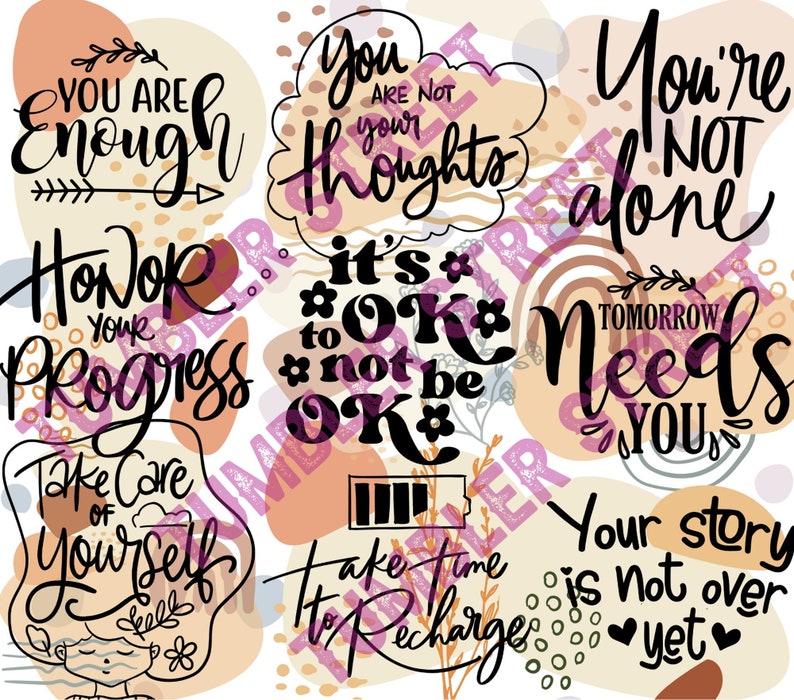 YOU ARE
Enough
You
ARE NOT
your
thoughts
You're
NOT
alone
HONOR
your
PROgRess
it's
OK
to
not be
OK
TOMORROW
Needs
YOU
Take Care
OF
Yourself
Take time
to Recharge
Your story
is not over
yet
TUMBLER STREET
TUMBLER STREET
TUMBLER STREET